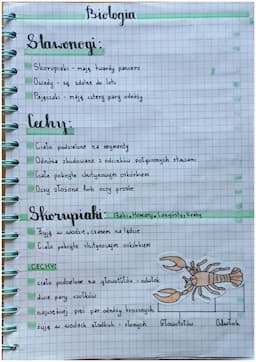 Biologia
Stawonogi:
Skorupiaki - mają twardy pancerz
Owady - są zdolne do lotu
Pajęczaki - mają cztery pary odnóży
Cechy:
Ciało podzielone na segmenty
Odnóża zbudowane z odcinków połączonych stawami
Ciało pokryte chitynowym oskórkiem
Oczy złożone lub oczy proste
Skorupiaki: Raki, Homary, Langusty, Kraby
Żyją w wodzie, czasem na lądzie
Ciało pokryte chitynowym oskórkiem
CECHY:
ciało podzielone na głowotułów i odwłok
dwie pary czułków
najczęściej pięć par odnóży krocznych
żyją w wodach słodkich i słonych
Głowotułów Odwłok